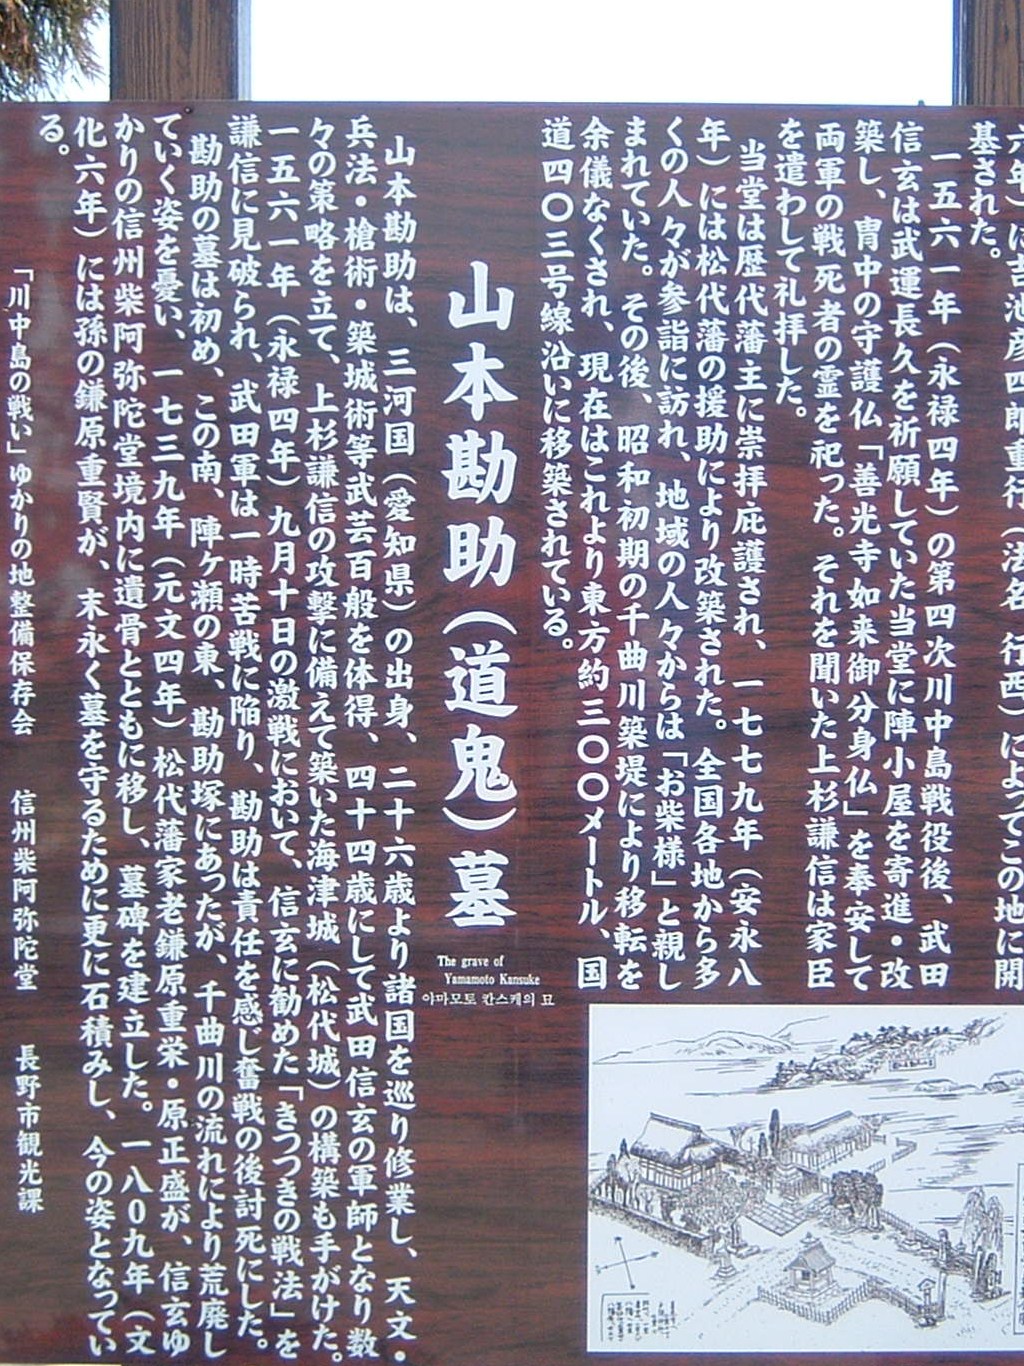 六年）に吉池彦四郎重行（法名 行西）によってこの地に開
基された。
一五六一年（永禄四年）の第四次川中島戦役後、武田
信玄は武運長久を祈願していた当堂に陣小屋を寄進・改
築し、冑中の守護仏「善光寺如来御分身仏」を奉安して
両軍の戦死者の霊を祀った。それを聞いた上杉謙信は家臣
を遣わして礼拝した。
当堂は歴代藩主に崇拝庇護され、一七七九年（安永八
年）には松代藩の援助により改築された。全国各地から多
くの人々が参詣に訪れ、地域の人々からは「お柴様」と親し
まれていた。その後、昭和初期の千曲川築堤により移転を
余儀なくされ、現在はこれより東方約三〇〇メートル、国
道四〇三号線沿いに移築されている。
山本勘助（道鬼）墓
The grave of
Yamamoto Kansuke
야마모토 칸스케의 묘
山本勘助は、三河国（愛知県）の出身、二十六歳より諸国を巡り修業し、天文・
兵法・槍術・築城術等武芸百般を体得、四十四歳にして武田信玄の軍師となり数
々の策略を立て、上杉謙信の攻撃に備えて築いた海津城（松代城）の構築も手がけた。
一五六一年（永禄四年）九月十日の激戦において、信玄に勧めた「きつつきの戦法」を
謙信に見破られ、武田軍は一時苦戦に陥り、勘助は責任を感じ奮戦の後討死にした。
勘助の墓は初め、この南、陣ヶ瀬の東、勘助塚にあったが、千曲川の流れにより荒廃し
ていく姿を憂い、一七三九年（元文四年）松代藩家老鎌原重栄・原正盛が、信玄ゆ
かりの信州柴阿弥陀堂境内に遺骨とともに移し、墓碑を建立した。一八〇九年（文
化六年）には孫の鎌原重賢が、末永く墓を守るために更に石積みし、今の姿となってい
る。
「川中島の戦い」ゆかりの地整備保存会 信州柴阿弥陀堂 長野市観光課